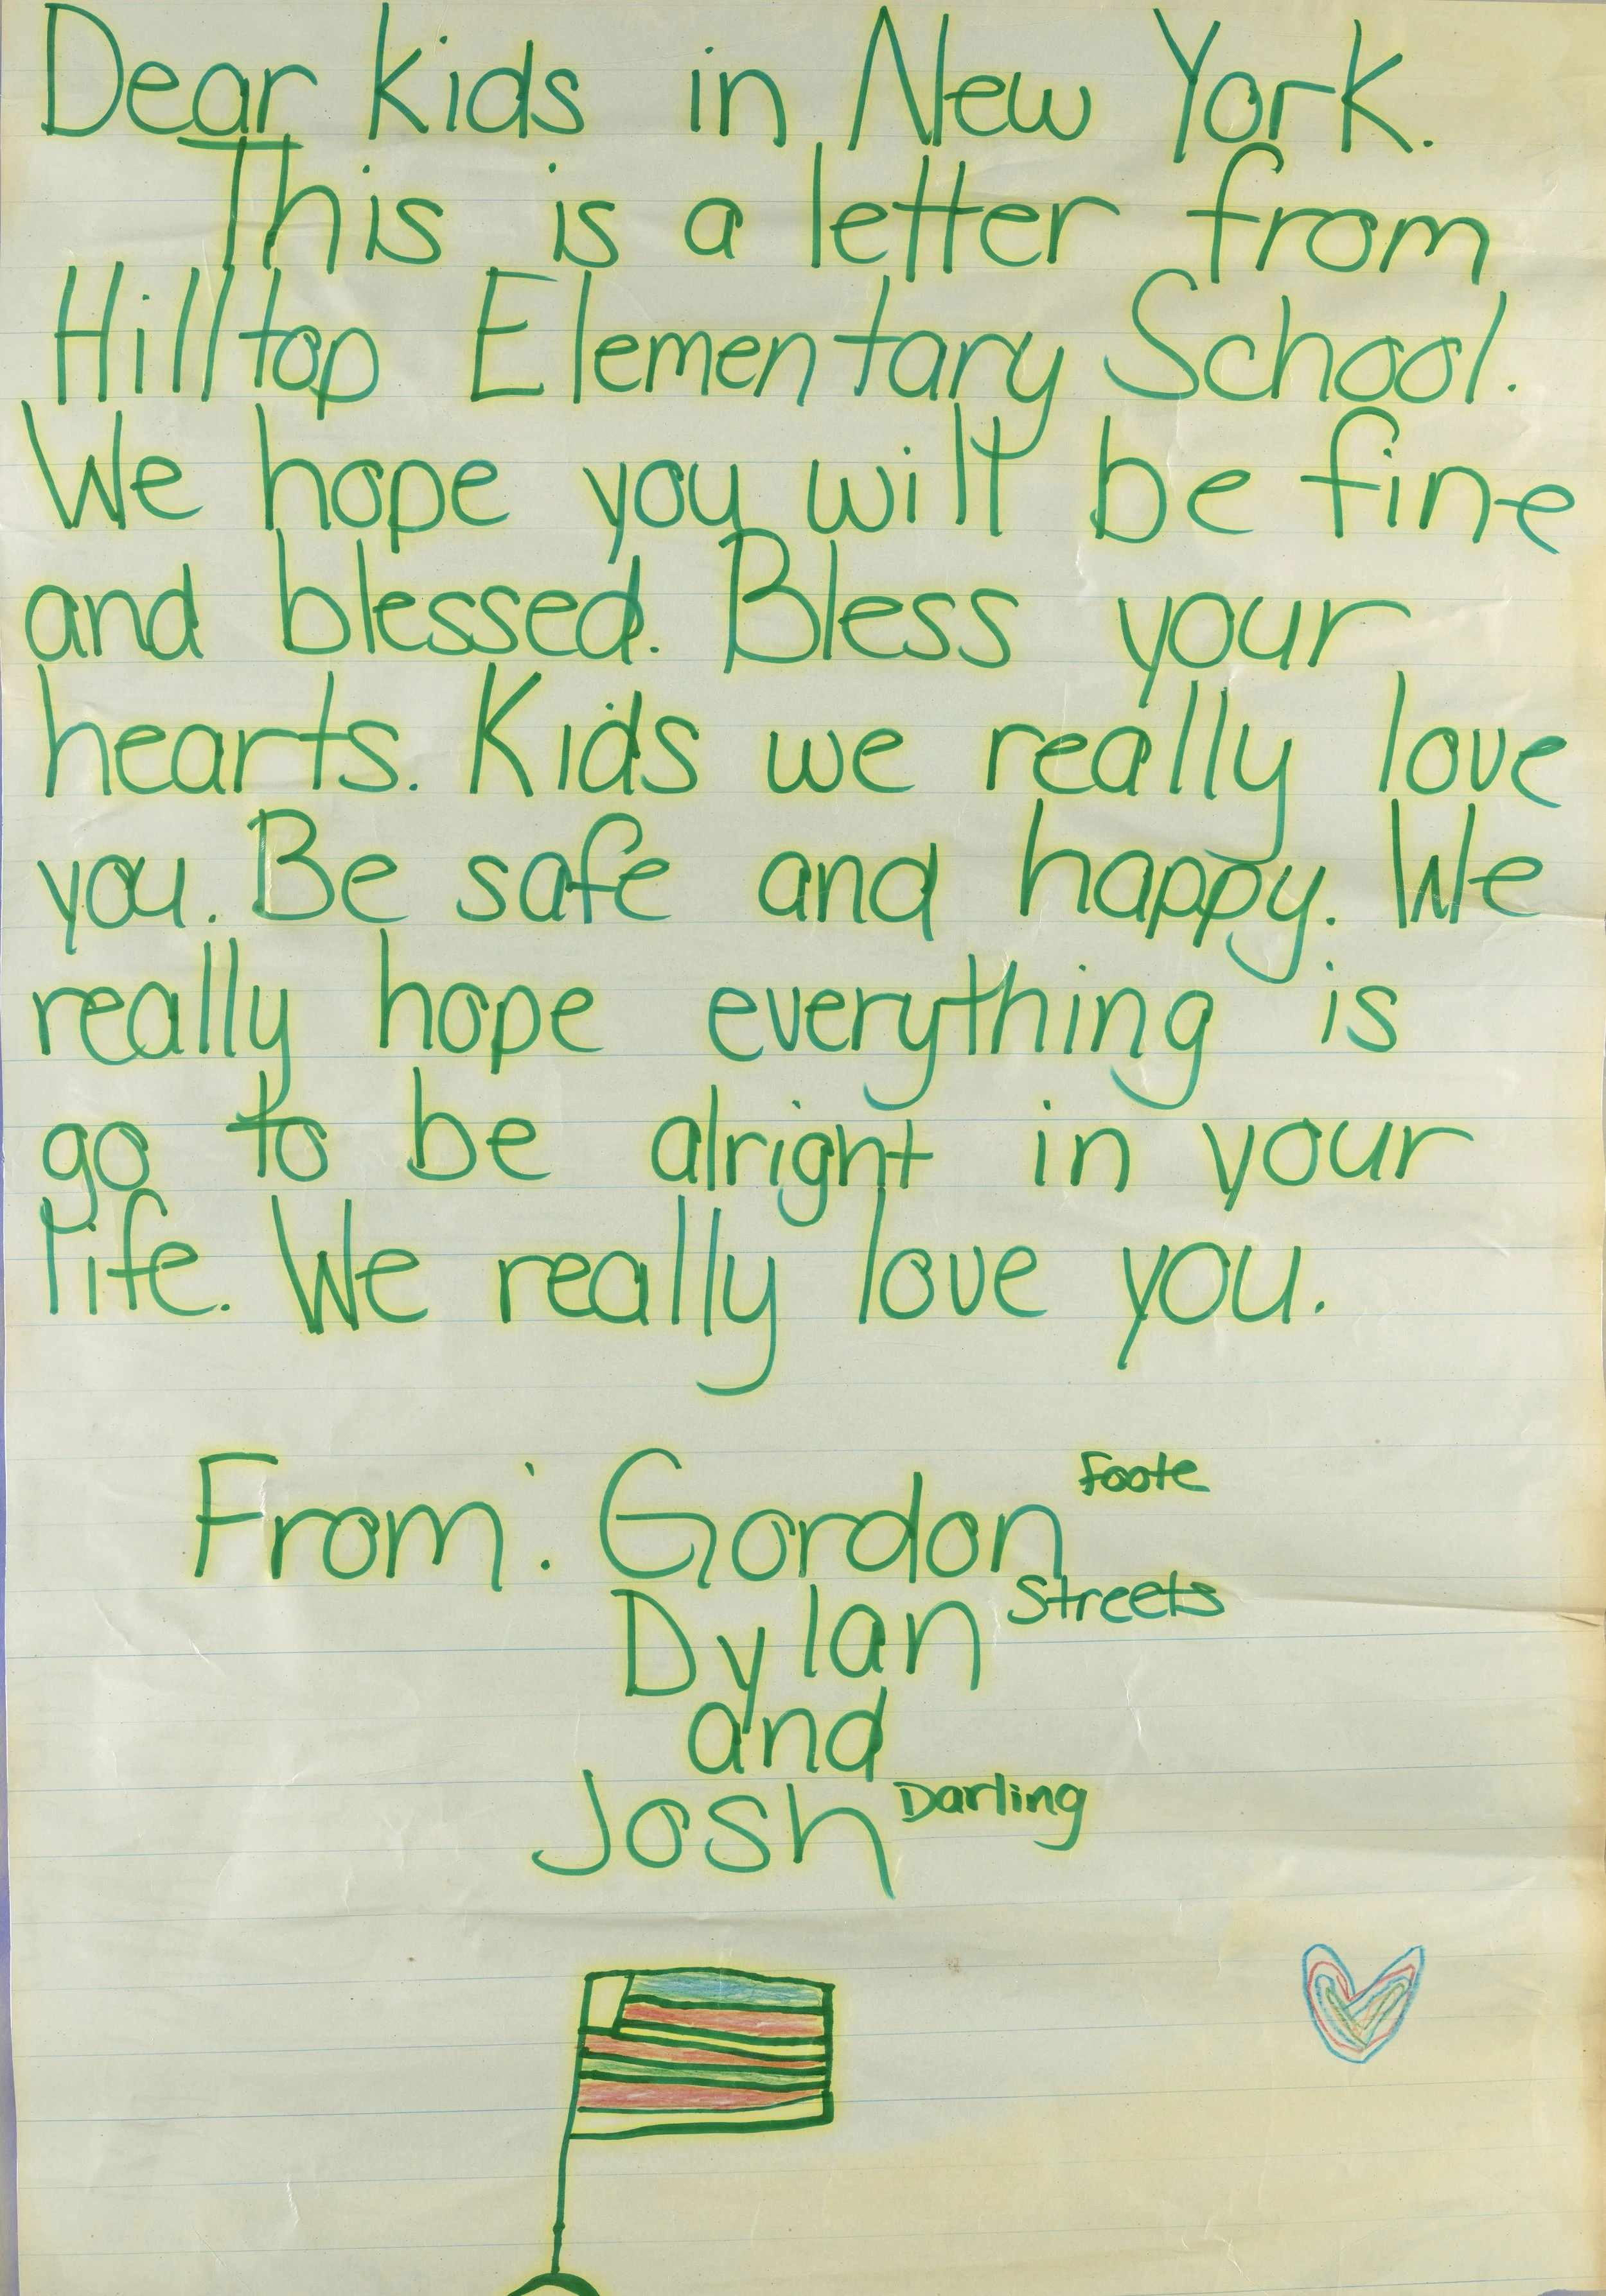 Dear kids in New York.
This is a letter from
Hilltop Elementary School.
We hope you will be fine
and blessed. Bless your
hearts. Kids we really love
you. Be safe and happy. We
really hope everything is
go to be alright in your
life. We really love you.
From: Gordon Foote
Dylan Streets
and
Josh Darling